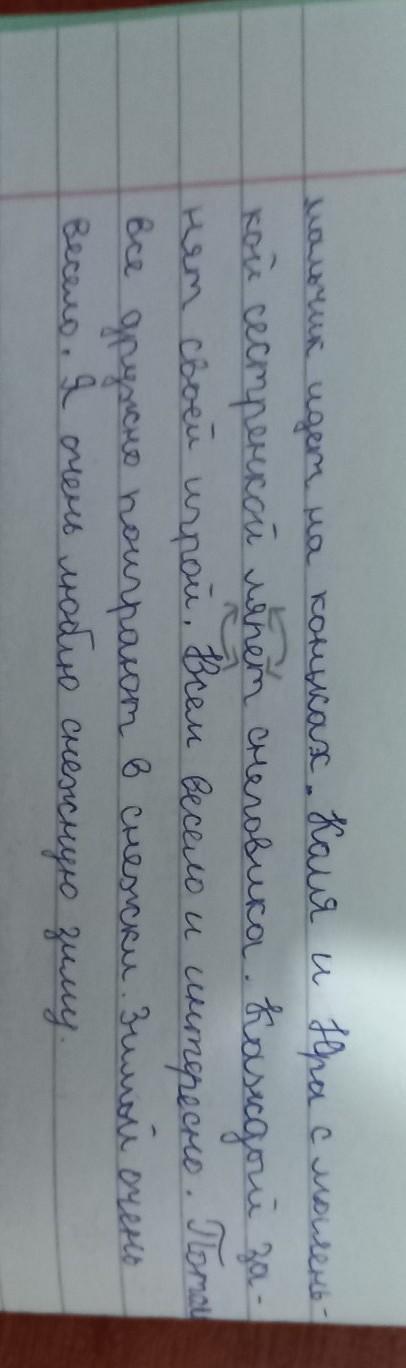 мальчик идет на коньках. Коля и Юра с малень-
кой сестренкой ляпет снеговика. Каждый за-
нят своей игрой. Всем весело и интересно. Потом
все дружно поиграют в снежки. Зимой очень
весело. Я очень люблю снежную зиму.